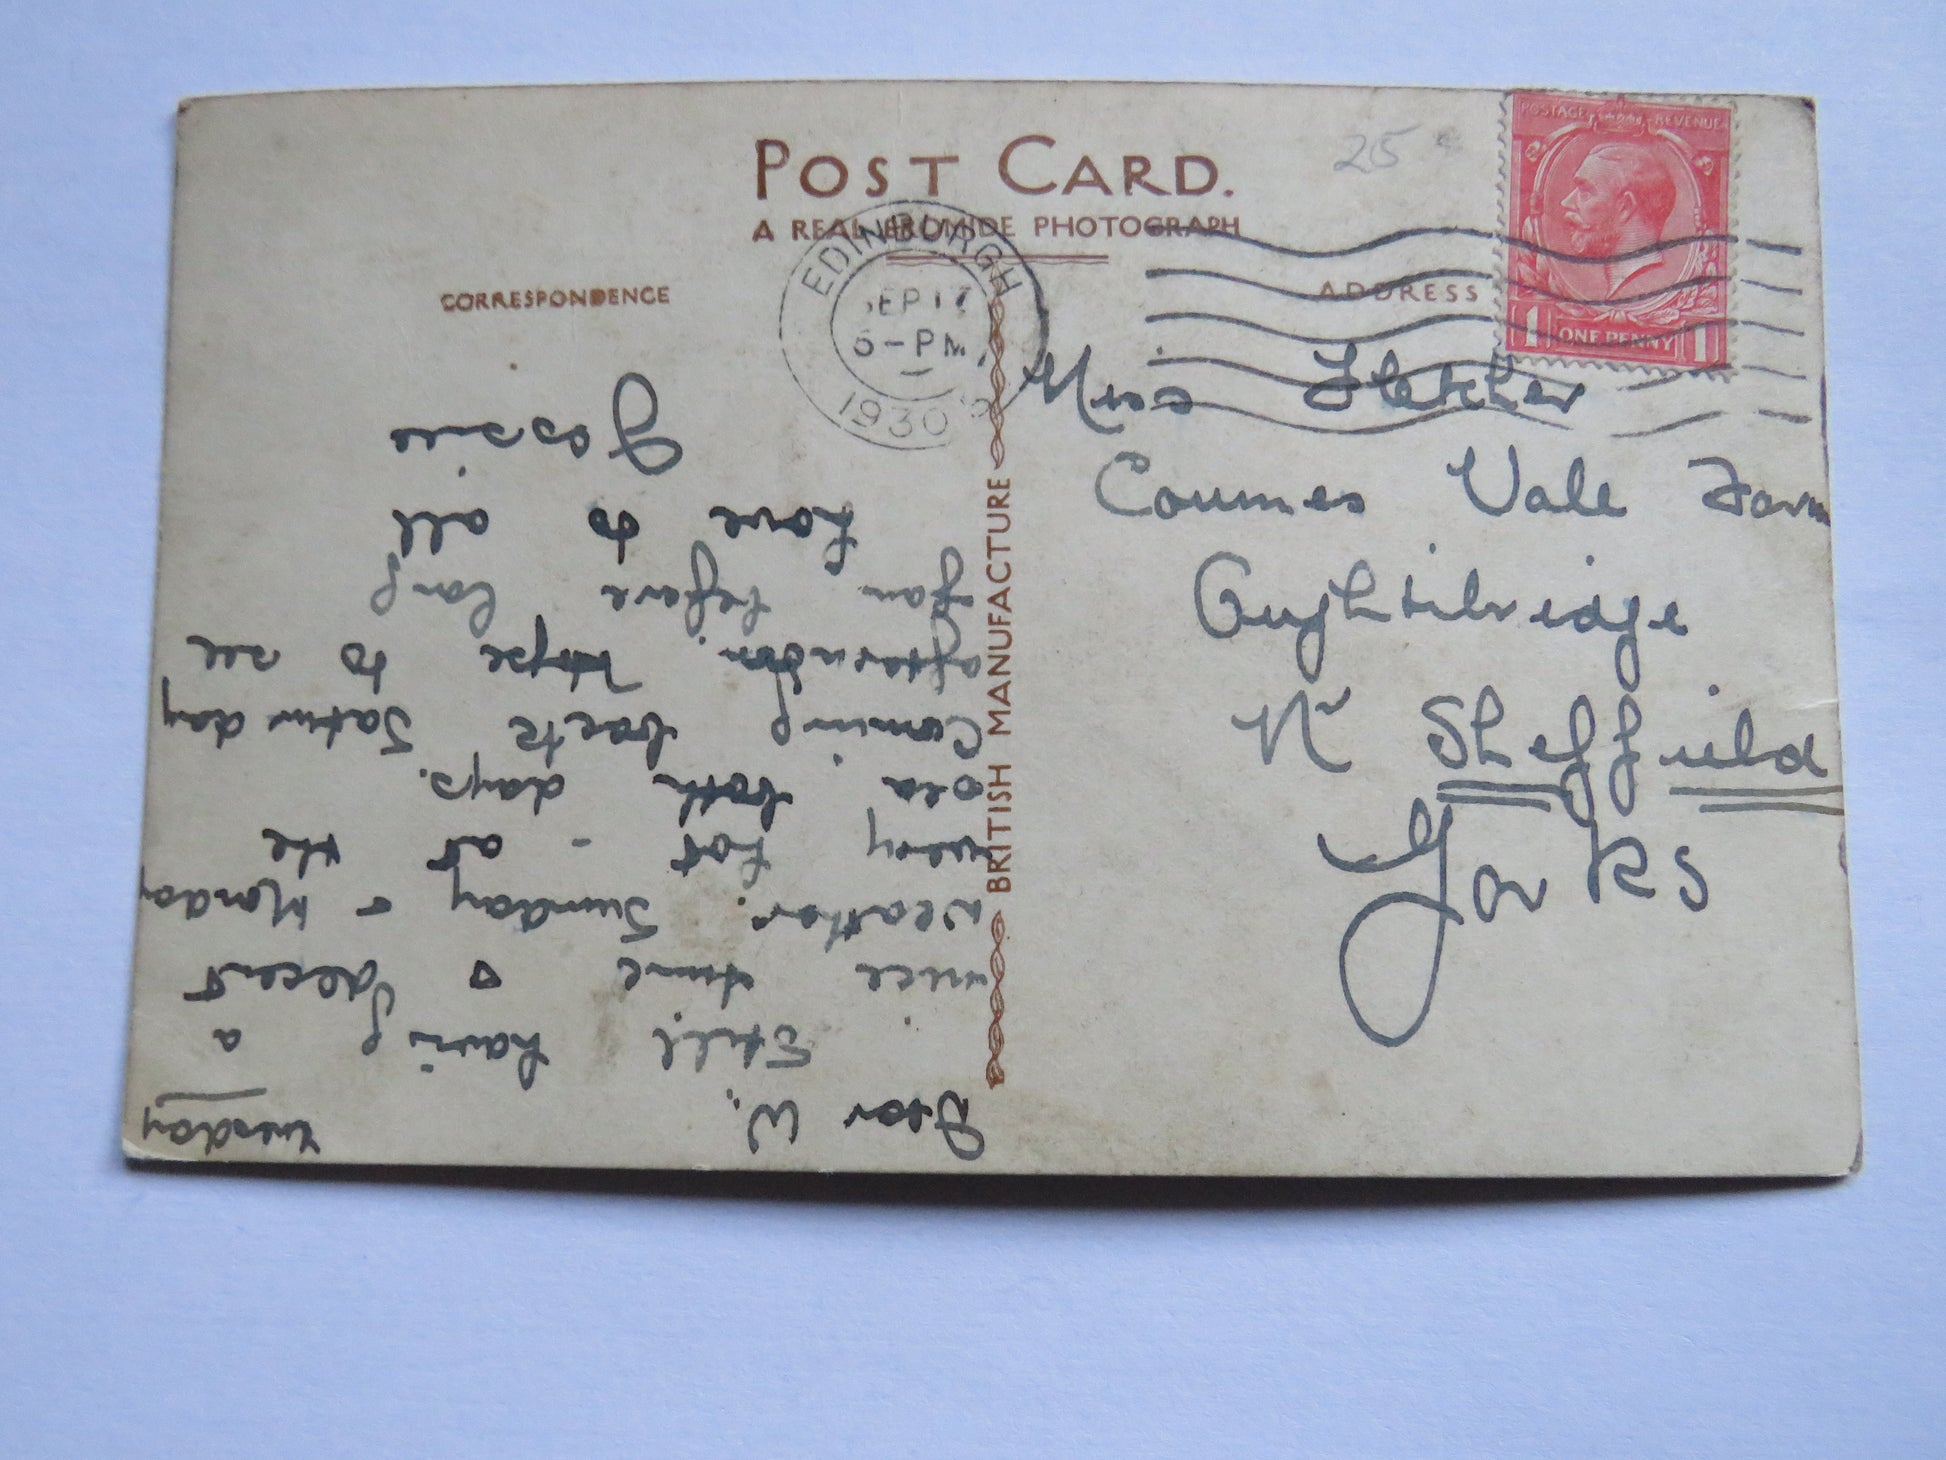 POST CARD.
A REAL BROMIDE PHOTOGRAPH
CORRESPONDENCE
ADDRESS
BRITISH MANUFACTURE
25
EDINBURGH
SEP 17
6-PM
1930
POSTAGE REVENUE
1 ONE PENNY 1
Miss Fletcher
Coumes Vale Farm
Oughtibridge
Nr Sheffield
Yorks
Tuesday
Dear W.
Still having a
nice time & decent
weather. Sunday & Monday
very hot - at the
sea both days.
Coming back Saturday
afternoon. Hope to see
you before long
Love to all
Jossie